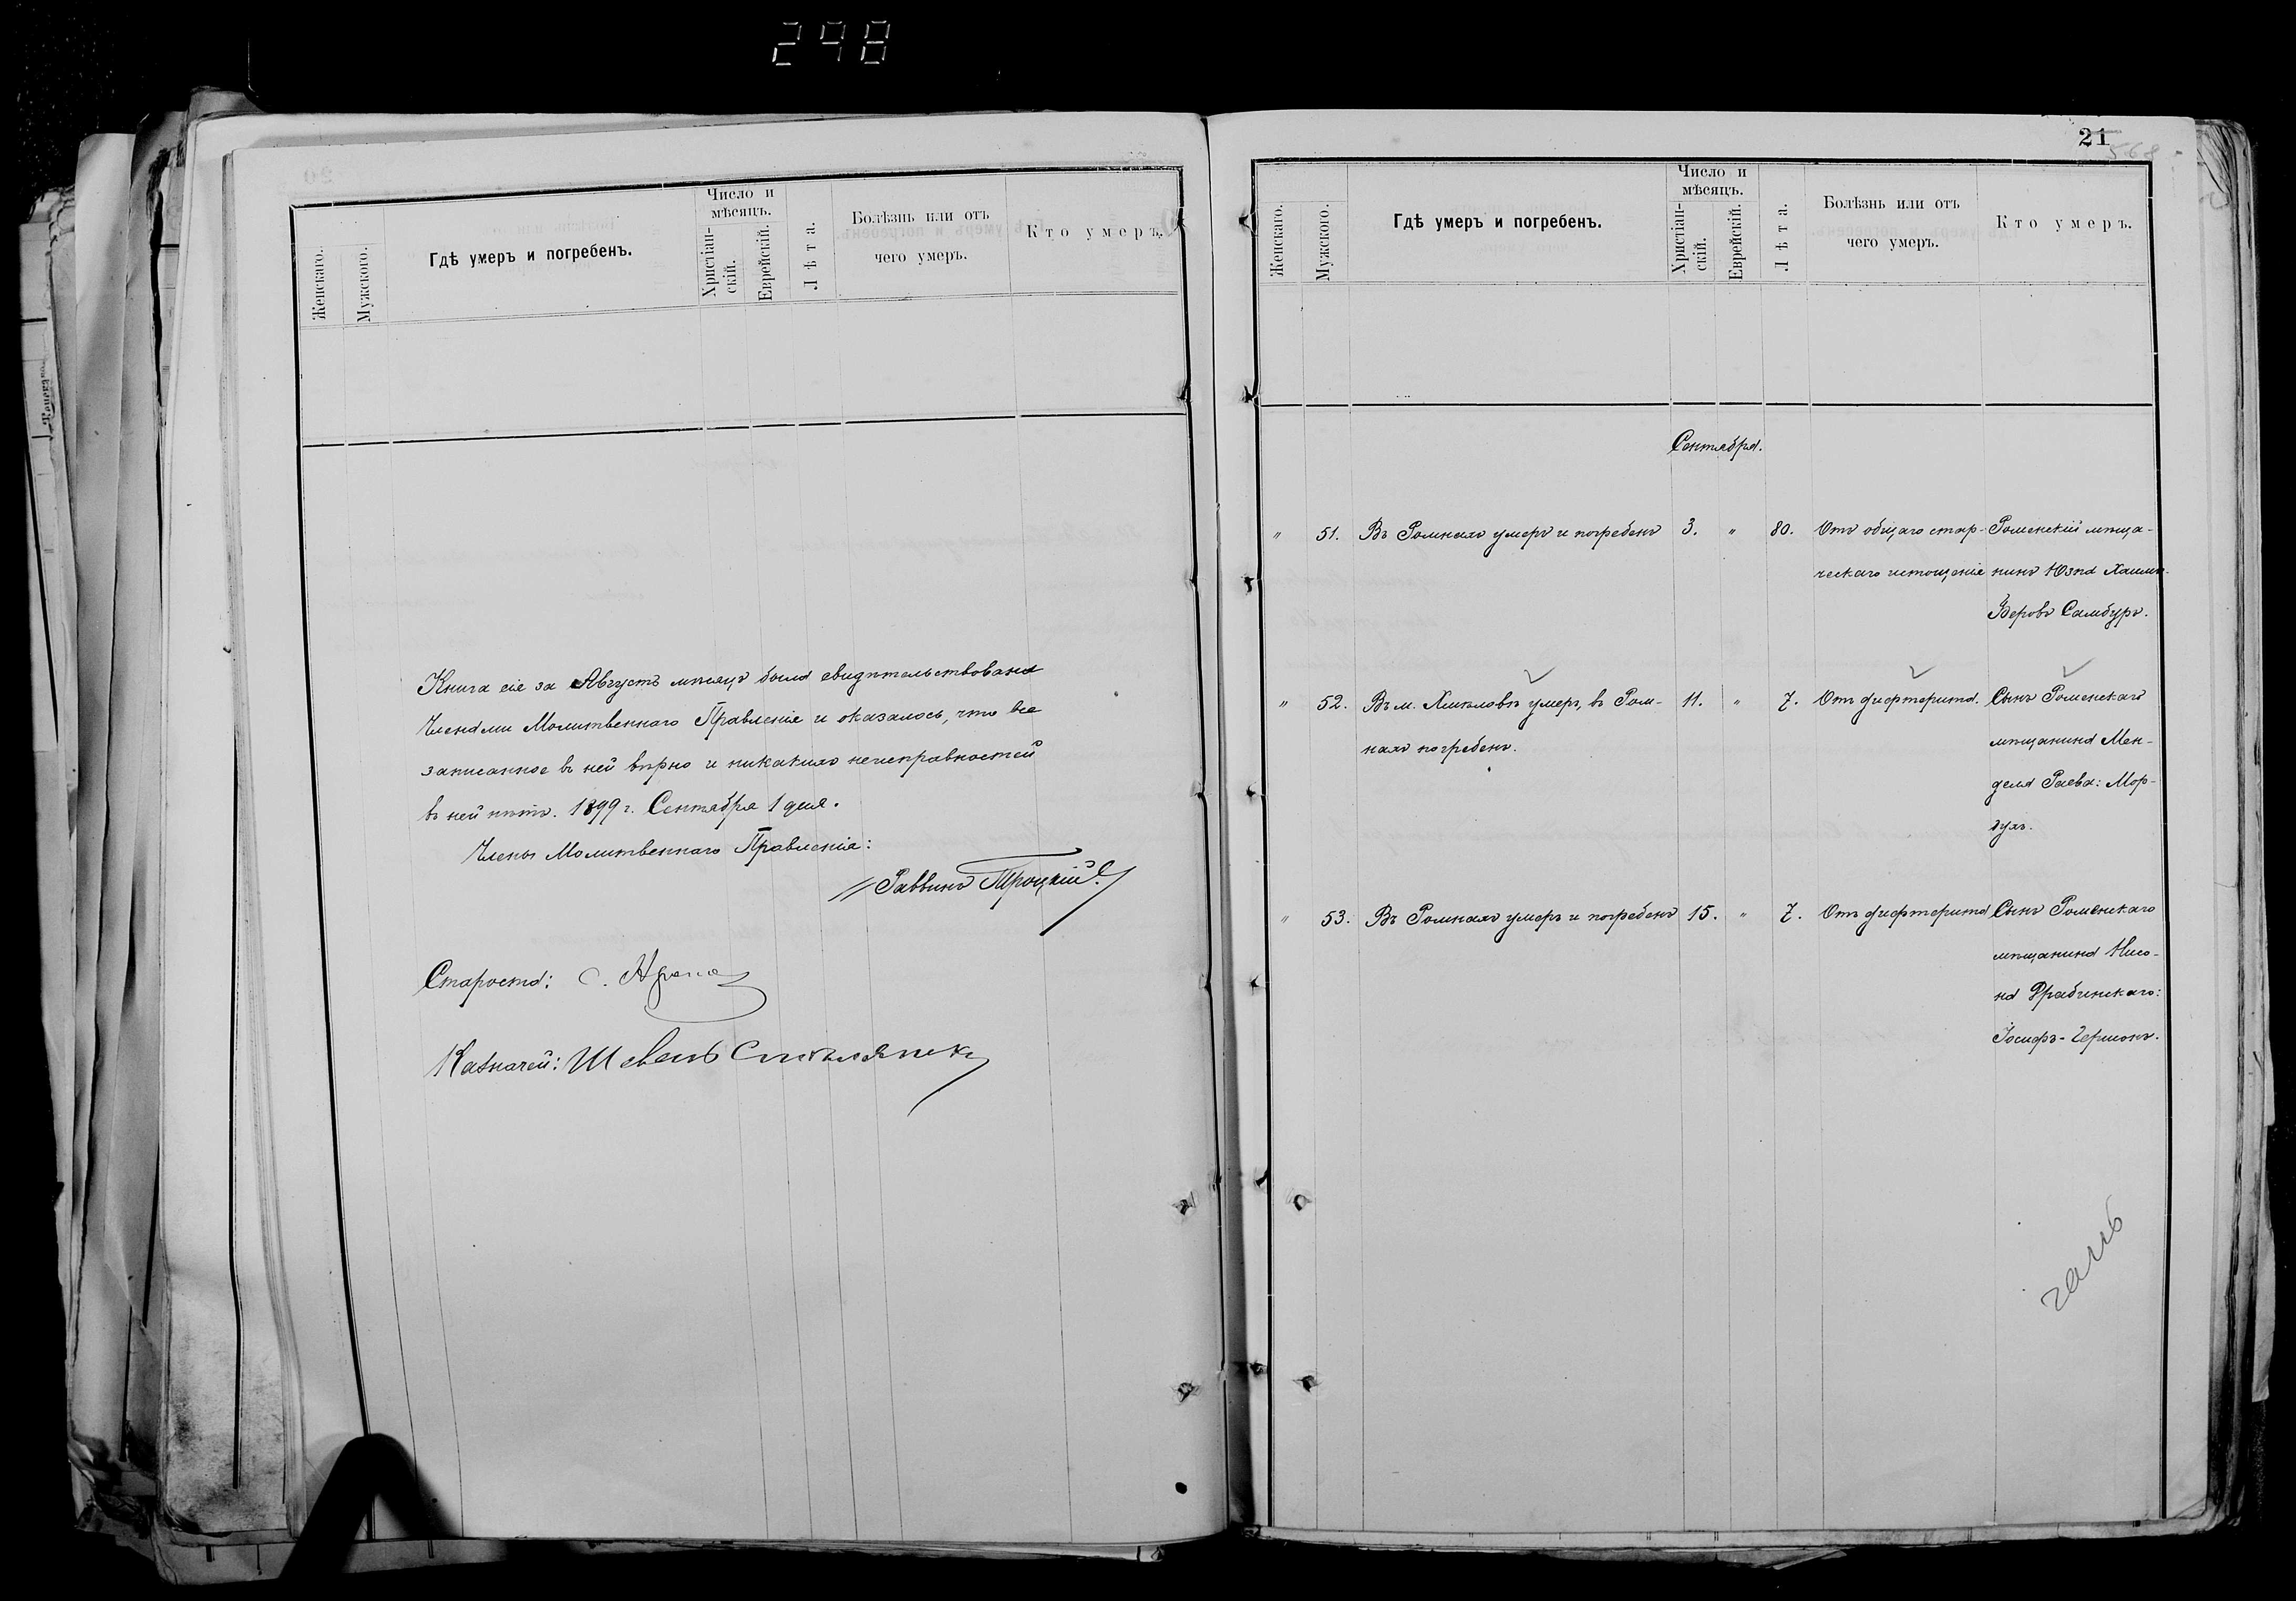 298
Женскаго.
Мужского.
Гдѣ умеръ и погребенъ.
Число и
мѣсяцъ.
Христіан-
скій.
Еврейскій.
Лѣта.
Болѣзнь или отъ
чего умеръ.
Кто умеръ.
Книга сія за Августъ мѣсяцъ была свидѣтельствована
Членами Молитвеннаго Правленія и оказалось, что все
записанное въ ней вѣрно и никакихъ неисправностей
въ ней нѣтъ. 1899 г. Сентября 1 дня.
Члены Молитвеннаго Правленія:
Раввинъ Троцкій
Староста:
Казначей:
21
568
Женскаго.
Мужского.
Гдѣ умеръ и погребенъ.
Число и
мѣсяцъ.
Христіан-
скій.
Еврейскій.
Лѣта.
Болѣзнь или отъ
чего умеръ.
Кто умеръ.
Сентября.
" 51. Въ Ромнахъ умеръ и погребенъ 3. " 80. Отъ общаго стар- Роменскій мѣща-
ческаго истощенія нинъ Юзпа Хаимъ-
Беровъ Самбуръ.
" 52. Въ м. Хмѣловѣ умеръ, въ Ром- 11. " 7. Отъ дифтерита. Сынъ Роменскаго
нахъ погребенъ. мѣщанина Мен-
деля Раева: Мор-
духъ.
" 53. Въ Ромнахъ умеръ и погребенъ 15. " 7. Отъ дифтерита Сынъ Роменскаго
мѣщанина Нисо-
на Драбинскаго:
Іосифъ-Гершонъ.